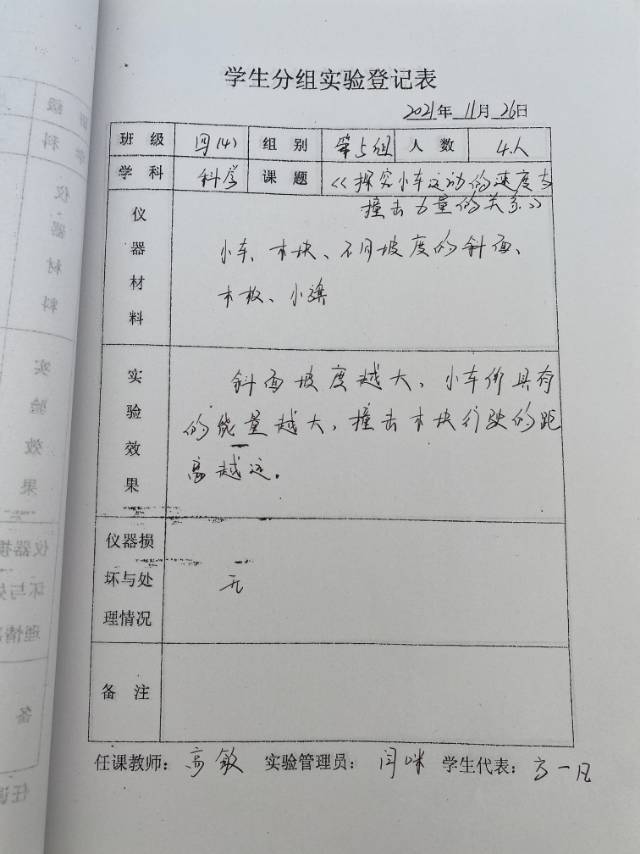 学生分组实验登记表
2021年 11月 26日
班级 四(4) 组别 第5组 人数 4人
学科 科学 课题 《探究小车运动的速度与
撞击力量的关系》
仪器材料
小车、木块、不同坡度的斜面、
木板、小旗
实验效果
斜面坡度越大、小车所具有
的能量越大、撞击木块行驶的距
离越远.
仪器损
坏与处
理情况
无
备注
任课教师: 高敏 实验管理员: 闫咪 学生代表: 高一凡